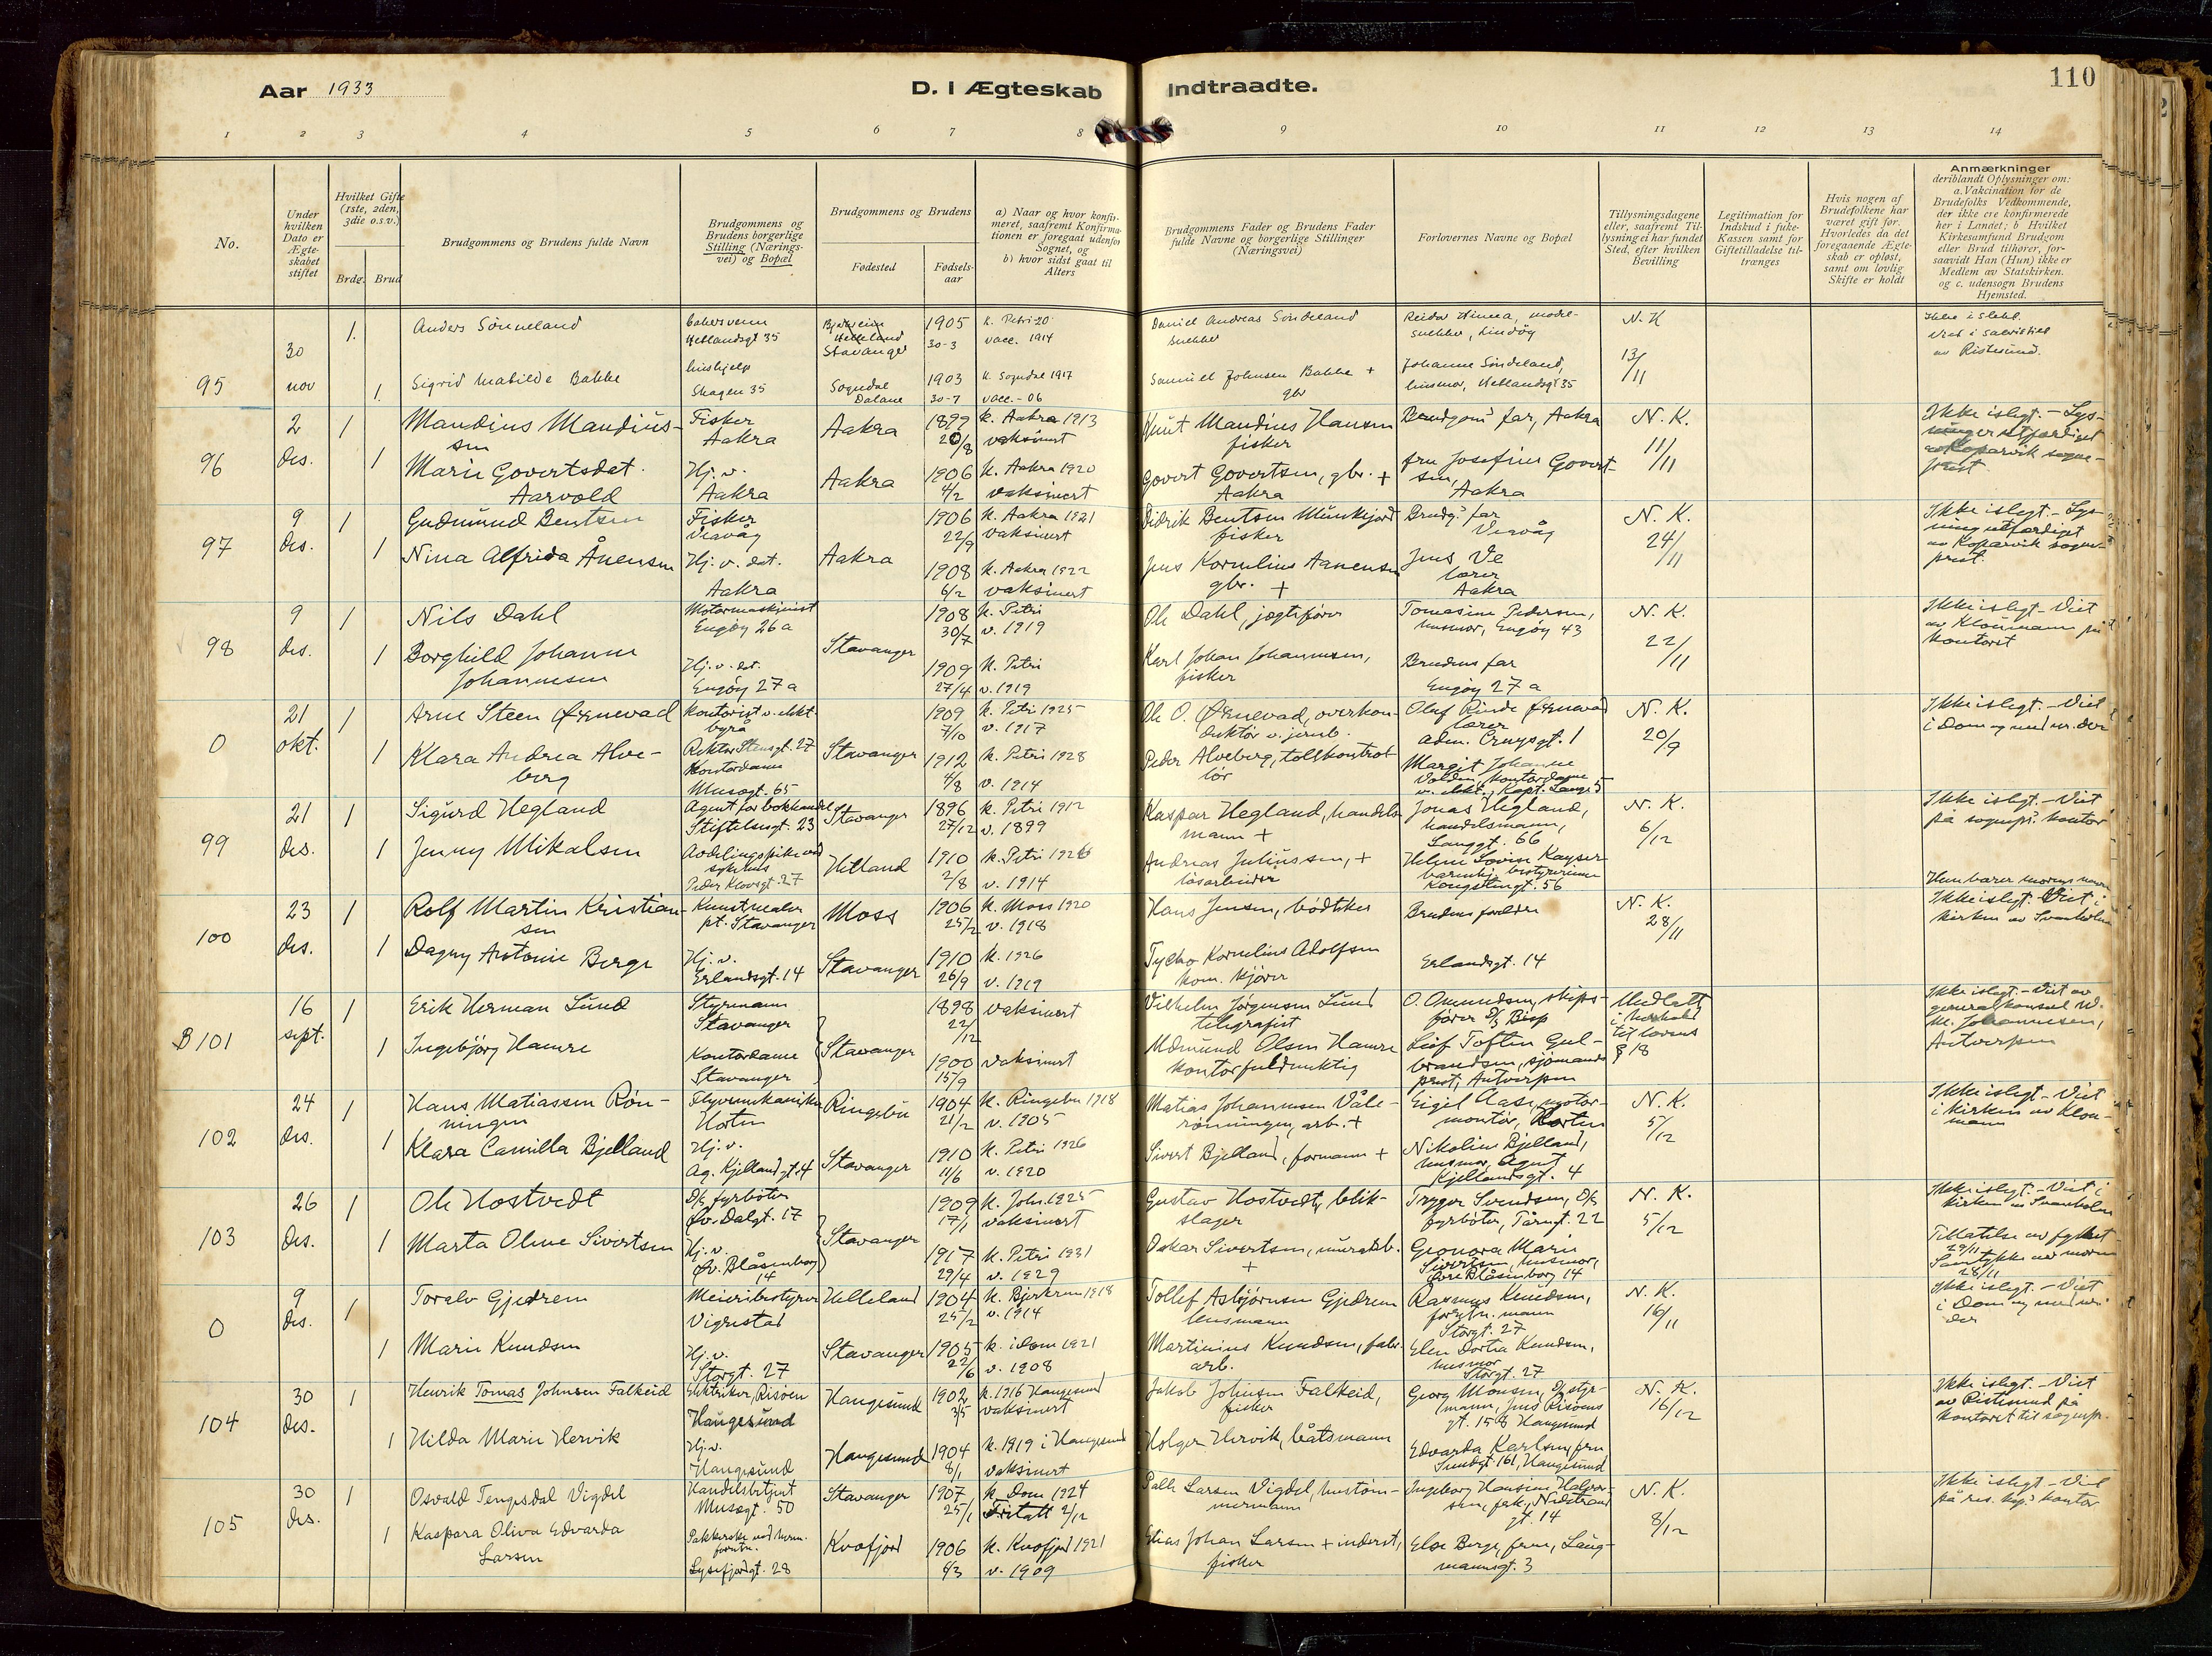 Aar 1933
D. I Ægteskab Indtraadte.
110
1 2 3 4 5 6 7 8 9 10 11 12 13 14
No.
Under hvilken Dato er Ægteskabet stiftet
Hvilket Gifte (1ste, 2den, 3die o.s.v.)
Brdg. Brud
Brudgommens og Brudens fulde Navn
Brudgommens og Brudens borgerlige Stilling (Næringsvei) og Bopæl
Brudgommens og Brudens
Fødested
Fødselsaar
a) Naar og hvor konfirmeret, saafremt Konfirmationen er foregaat udenfor Sognet, og b) hvor sidst gaat til Alters
Brudgommens Fader og Brudens Fader fulde Navne og borgerlige Stillinger (Næringsvei)
Forlovernes Navne og Bopæl
Tillysningsdagene eller, saafremt Tillysning ei har fundet Sted, efter hvilken Bevilling
Legitimation for Indskud i Enke-Kassen samt for Giftetilladelse tiltrænges
Hvis nogen af Brudefolkene har været gift før. Hvorledes da det foregaaende Ægteskab er opløst, samt om lovlig Skifte er holdt
Anmærkninger deriblandt Oplysninger om: a. Vakcination for de Brudefolks Vedkommende, der ikke ere konfirmerede her i Landet; b Hvilket Kirkesamfund Brudgom eller Brud tilhører, forsaavidt Han (Hun) ikke er Medlem av Statskirken. og c. udensogn Brudens Hjemsted.
95 30 nov 1. Anders Sønneland Hetlandsgt 35 Stavanger 1905 30-3 k. Petri 20 vacc. 1914 Daniel Andreas Søndeland snekker N. K 13/11
1. Sigrid Mathilde Bakke hushjelp Skagen 35 Sogndal Dalane 1903 30-7 k. Sogndal 1917 vacc. - 06 Samuel Johnsen Bakke + gbr Johanne Søndeland, husmor, Hetlandsgt 35
96 2 des. 1 Maudius Maudiussen Fisker Aakra Aakra 1899 20/8 k. Aakra 1913 vaksinert Knut Maudius Hansen fisker Brudgoms far, Aakra N. K. 11/11 Ikke islegt. - Lysning er utferdiget av Kopervik sogneprest
1 Marie Govertsdat. Aarvold Hj. v. Aakra Aakra 1906 4/2 k. Aakra 1920 vaksinert Govert Govertsen, gbr. + Aakra fru Josefine Govertsen, Aakra
97 9 des. 1 Gudmund Bentsen Fisker Veavåg Aakra 1906 22/9 k. Aakra 1921 vaksinert Didrik Bentsen Munkejord fisker Brudg.s far Veavåg N. K. 24/11 Ikke islegt. - Lysning utferdiget av Kopervik sogneprest.
1 Nina Alfrida Ånensen Hj. v. dat. Aakra 1908 6/2 k. Aakra 1922 vaksinert Jens Kornelius Aanensen gbr. + Jens Ve lærer Aakra
98 9 des. 1 Nils Dahl Motormaskinist Engøy 26 a Stavanger 1908 30/7 k. Petri v. 1919 Ole Dahl, jagtefører Tomasine Pedersen, husmor, Engøy 43 N. K. 22/11 Ikke islegt - Viet av Kloumann på kontoret
1 Borghild Johanne Johannesen Hj. v. dat. Engøy 27 a 1909 27/4 k. Petri v. 1919 Karl Johan Johannesen, fisker Brudens far Engøy 27 a
0 21 okt. 1 Arne Steen Ørnevad Kontorist v. elekt. byrå Rektor Steensgt. 27 Stavanger 1909 7/10 k. Petri 1925 v. 1917 Ole O. Ørnevad, overkonduktør v. jernb. Olaf Rinde Ørnevad lærer adm. Cruysgt. 1 N. K. 20/9 Ikke islegt. - Viet i Dom og med nr. der
1 Klara Andrea Alveberg Kontordame Musegt. 65 1912 4/8 k. Petri 1928 v. 1914 Peder Alveberg, tollkontrollør Margit Johanne Volden, kontordame v. elekt., Kapt. Langes
99 21 des. 1 Sigurd Hegland Agent for bokhandel Stiftelsesgt. 23 Stavanger 1896 27/12 k. Petri 1912 v. 1899 Kaspar Hegland, handelsmann + Jonas Hegland, handelsmann, Langgt. 66 N. K. 6/12 Ikke islegt. - Viet på sognepr.s kontor
1 Jenny Mikalsen Avdelingspike ved sykehus Peder Klowsgt. 27 Hetland 1910 2/8 k. Petri 1926 v. 1914 Andreas Juliussen, + løsarbeider Helene Lovise Kayser bestyrerinne Kongsteingt. 56
100 23 des. 1 Rolf Martin Kristiansen Kunstmaler pt. Stavanger Moss 1906 25/2 k. Moss 1920 v. 1918 Hans Jensen, bødtker Brudens foreldre N. K. 28/11 Hun bærer morens navn Ikke islegt. Viet i kirken av Svanholm
1 Dagny Antonie Berge Hj. v. Erlandsgt. 14 Stavanger 1910 26/9 k. 1926 v. 1919 Tycho Kornelius Adolfsen kom. kjører Erlandsgt. 14
B 101 16 sept. 1 Erik Herman Lund Styrmann Stavanger Stavanger 1898 22/12 vaksinert Vilhelm Jørgensen Lund telegrafist O. Omundsen, skipsfører D/S Bisp Meddelt i henhold til lovens § 18 Ikke islegt. - Viet av generalkonsul W. M. Johannesen, Antwerpen
1 Ingebjørg Hamre Kontordame Stavanger 1900 15/9 vaksinert Edmund Olsen Hamre kontorfuldmektig Leif Toften Gulbrandsen, sjømandsprest, Antwerpen
102 24 des. 1 Hans Matiassen Rønningen Flyvemekaniker Horten Ringebu 1904 21/2 k. Ringebu 1918 v. 1905 Matias Johannesen Vålerønningen, arb. + Eigil Aase, motormontør, Horten N. K. 5/12 Ikke islegt - Viet i kirken av Kloumann
1 Klara Camilla Bjelland Hj. v. Ag. Kjellandgt. 4 Stavanger 1910 11/6 k. Petri 1926 v. 1920 Sivert Bjelland, formann + Nikoline Bjelland, husmor, Agent Kjellandsgt. 4
103 26 des. 1 Ole Hostvedt D/S fyrbøter Øv. Dalgt. 17 Stavanger 1909 17/1 k. Joh. 1925 vaksinert Gustav Hostvedt, blikslager Trygve Svendsen, D/S fyrbøter, Tårngt. 22 N. K. 5/12 Ikke islegt. - Viet i kirken av Svanholm
1 Marta Oline Sivertsen Hj. v. Øv. Blåsenborg 14 1917 29/4 k. Petri 1931 v. 1929 Oskar Sivertsen, murarb. + Geonora Marie Sivertsen, husmor, Øvre Blåsenborg 14 Tillatelse av fylket 29/11 Samtykke av moren 28/11
0 9 des. 1 Toralv Gjedrem Meieribestyrer Vigrestad Helleland 1904 25/2 k. Bjerkrem 1918 v. 1914 Tollef Asbjørnsen Gjedrem lensmann Rasmus Knudsen, forretn. mann Storgt. 27 N. K. 16/11 Ikke islegt. - Viet i Dom og med nr. der
1 Marie Knudsen Hj. v. Storgt. 27 Stavanger 1905 22/6 k. i Dom 1921 v. 1908 Martinius Knudsen, fabr. arb. Elen Dortea Knudsen, husmor Storgt. 27
104 30 des. 1 Henrik Tomas Johnsen Falkeid Elektriker, Risøen Haugesund Haugesund 1902 3/5 k. 1916 Haugesund vaksinert Jakob Johnsen Falkeid, fisker Georg Monsen, D/S styrmann, Jens Risøens gt. 158 Haugesund N. K. 16/12 Ikke islegt. - Viet av Ristesund på kontoret til sognepr.
1 Hilda Marie Hervik Hj. v. Haugesund Haugesund 1904 8/1 k. 1919 i Haugesund vaksinert Holger Hervik, båtsmann Edvarda Karlsen, fru Sundgt 161, Haugesund
105 30 des. 1 Osvald Tengesdal Vigdel Handelsbetjent Musegt. 50 Stavanger 1907 25/1 k. Dom 1924 Fritatt 2/12 Palle Larsen Vigdel, hustømmermann Ingeborg Hansine Halvorsen, frk., Nedstrand gt. 14 N. K. 8/12 Ikke islegt - Viet på res. kap.s kontor
1 Kaspara Oliva Edvarda Larsen Pakkerske ved herm. forretn. Lysefjordgt. 28 Kvæfjord 1906 4/3 k. Kvæfjord 1921 v. 1909 Elias Johan Larsen + inderst, fisker Else Berge, frue, Laugmannsgt. 3